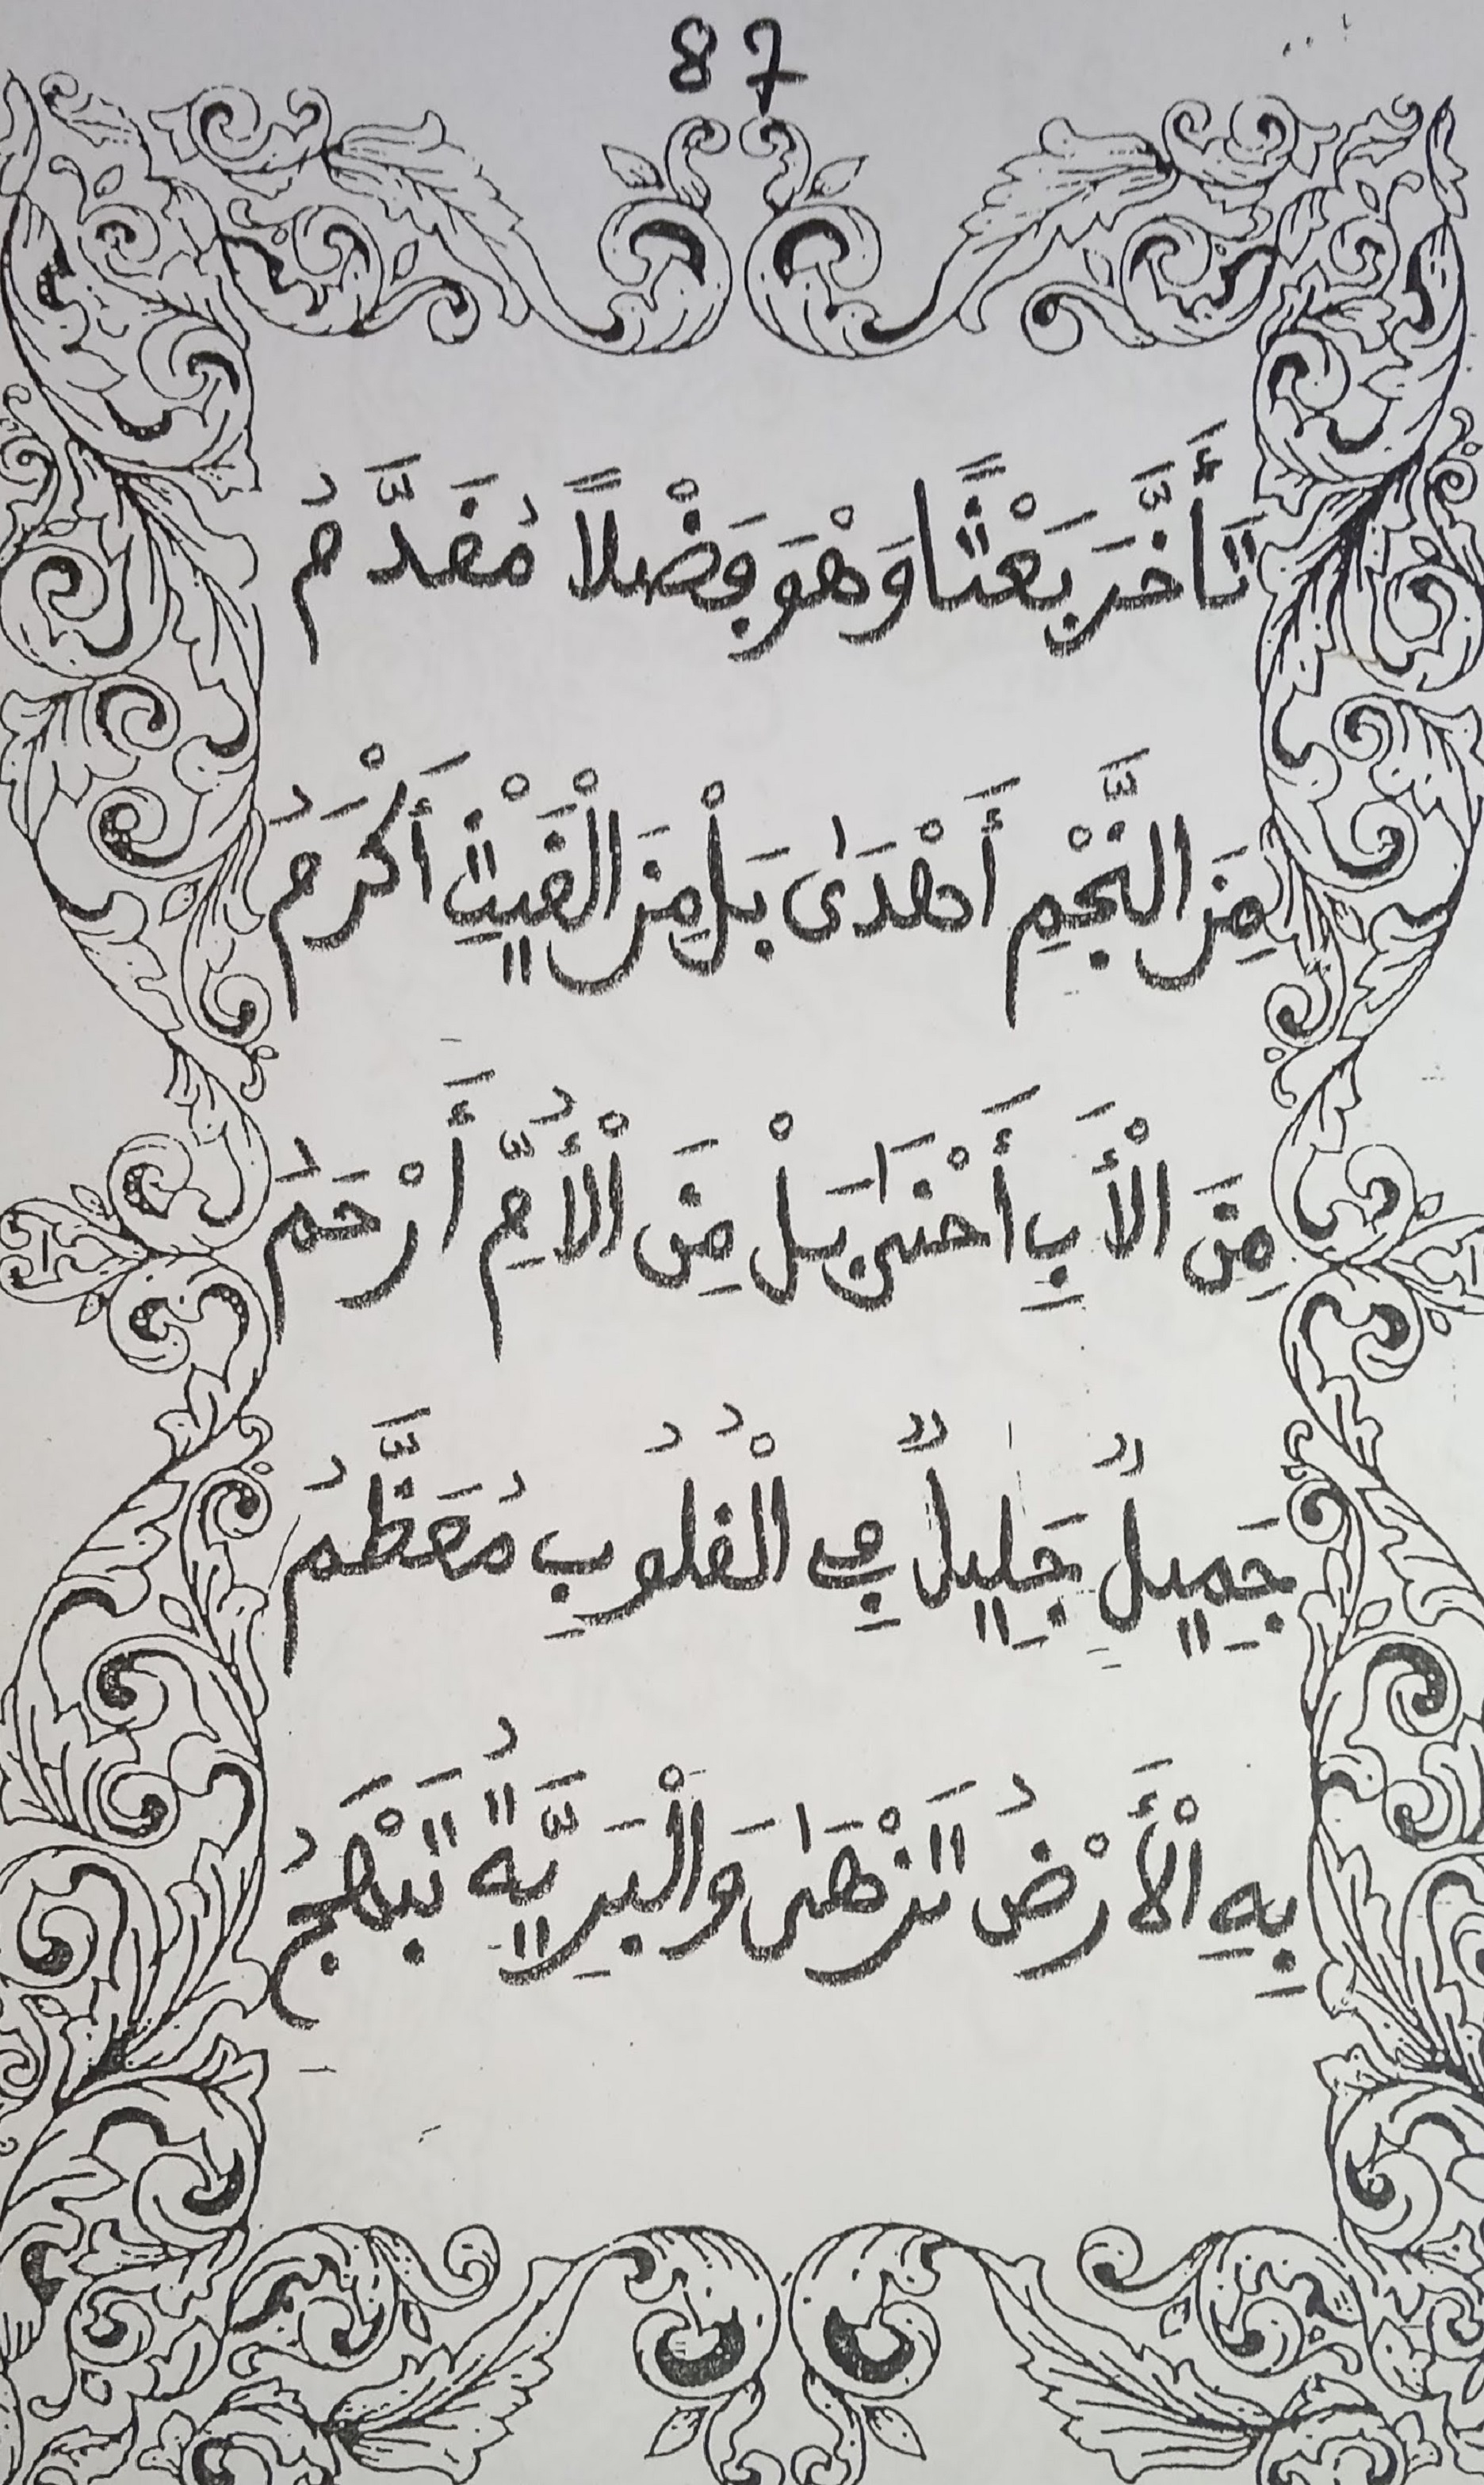 87
تَأَخَّرَ بَعْثًا وَهْوَ فَضْلًا مُقَدَّمُ
مِنَ النَّجْمِ أَهْدَىٰ بَلْ مِنَ الْغَيْثِ أَكْرَمُ
مِنَ الْأَبِ أَحْنَىٰ بَلْ مِنَ الْأُمِّ أَرْحَمُ
جَمِيلٌ جَلِيلٌ فِي الْقُلُوبِ مُعَظَّمُ
بِهِ الْأَرْضُ تَزْهَىٰ وَالْبَرِيَّةُ تَبْهَجُ